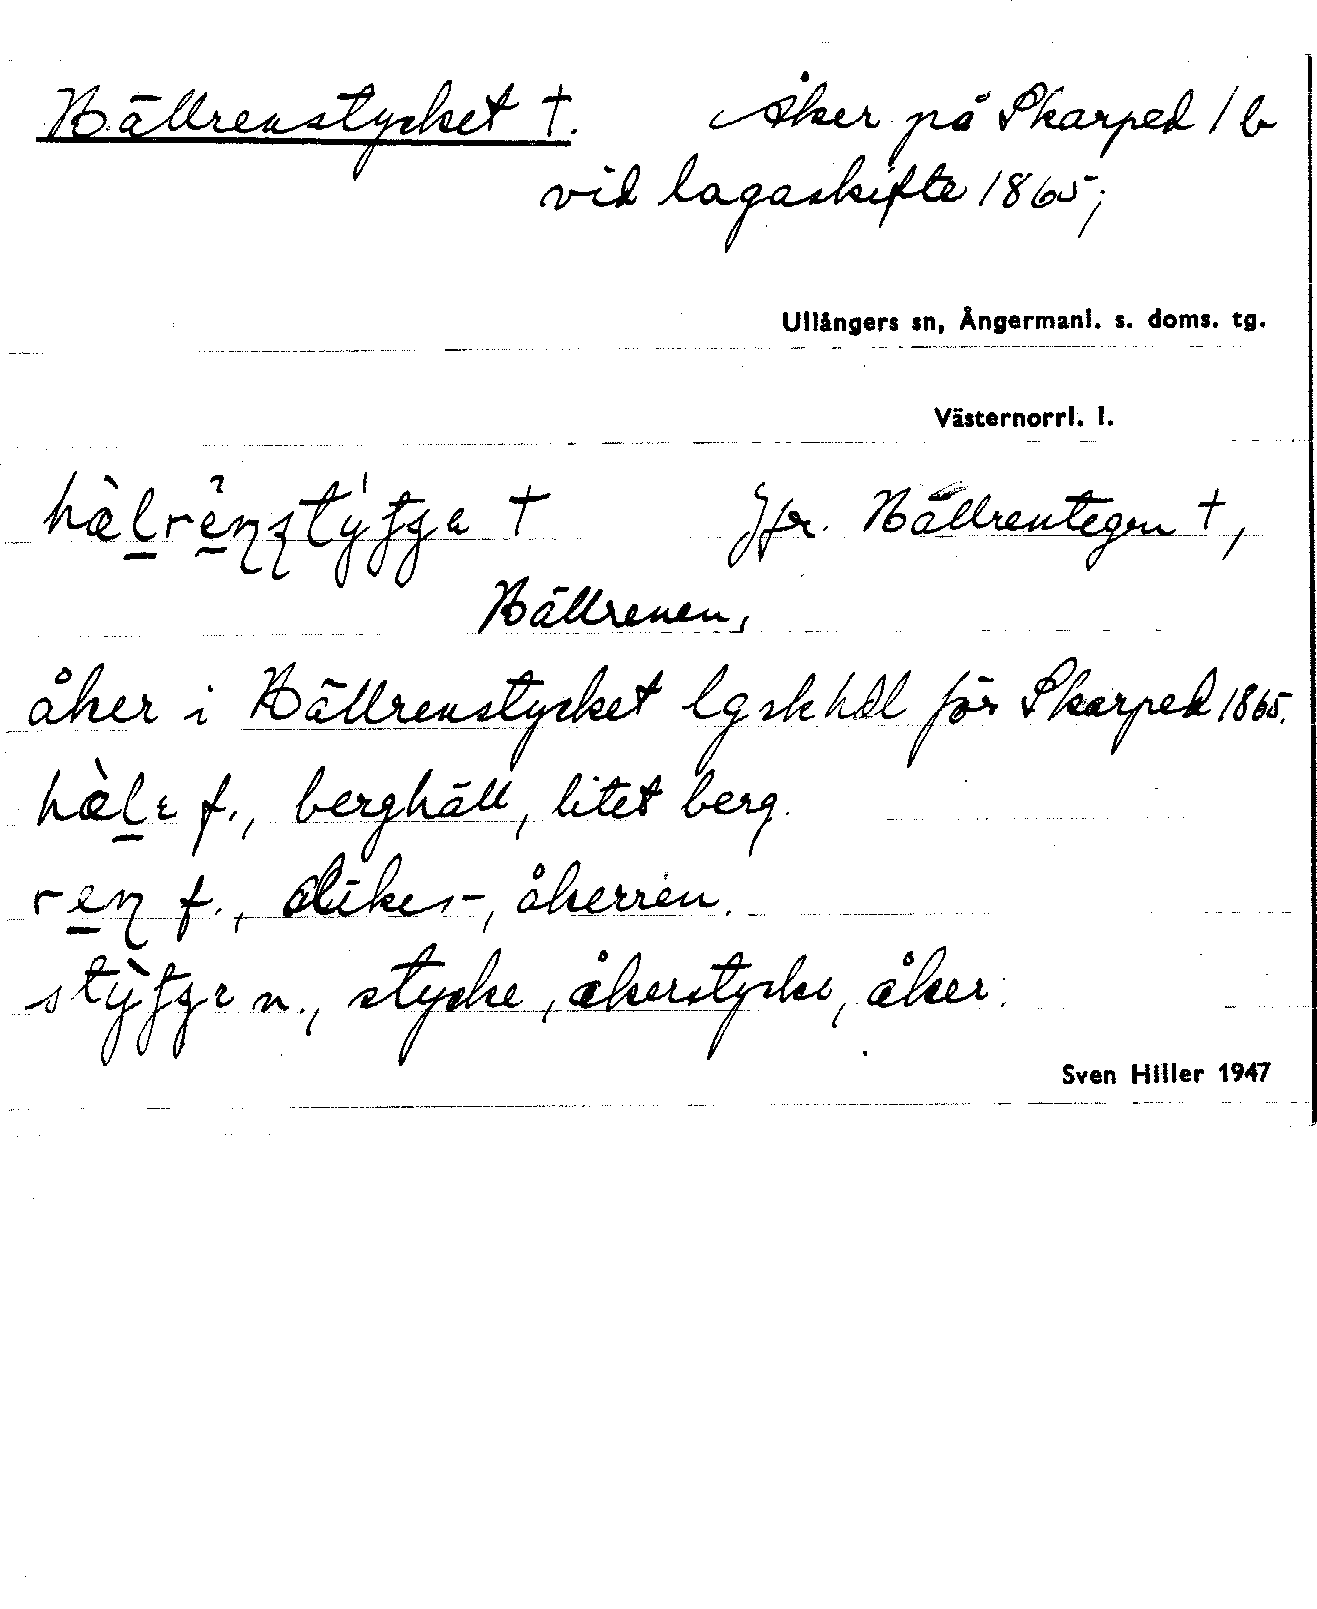 Hällrenstycket †. Åker på Skarped 1 b
vid lagaskifte 1865;
Ullångers sn, Ångermanl. s. doms. tg.
Västernorrl. l.
† Jfr. Hällrentegen †,
Hällrenen,
åker i Hällrenstycket lgskhdl för Skarped 1865.
f., berghäll, litet berg.
ren f., dikes-, åkerren.
n., stycke, åkerstycke, åker.
Sven Hiller 1947